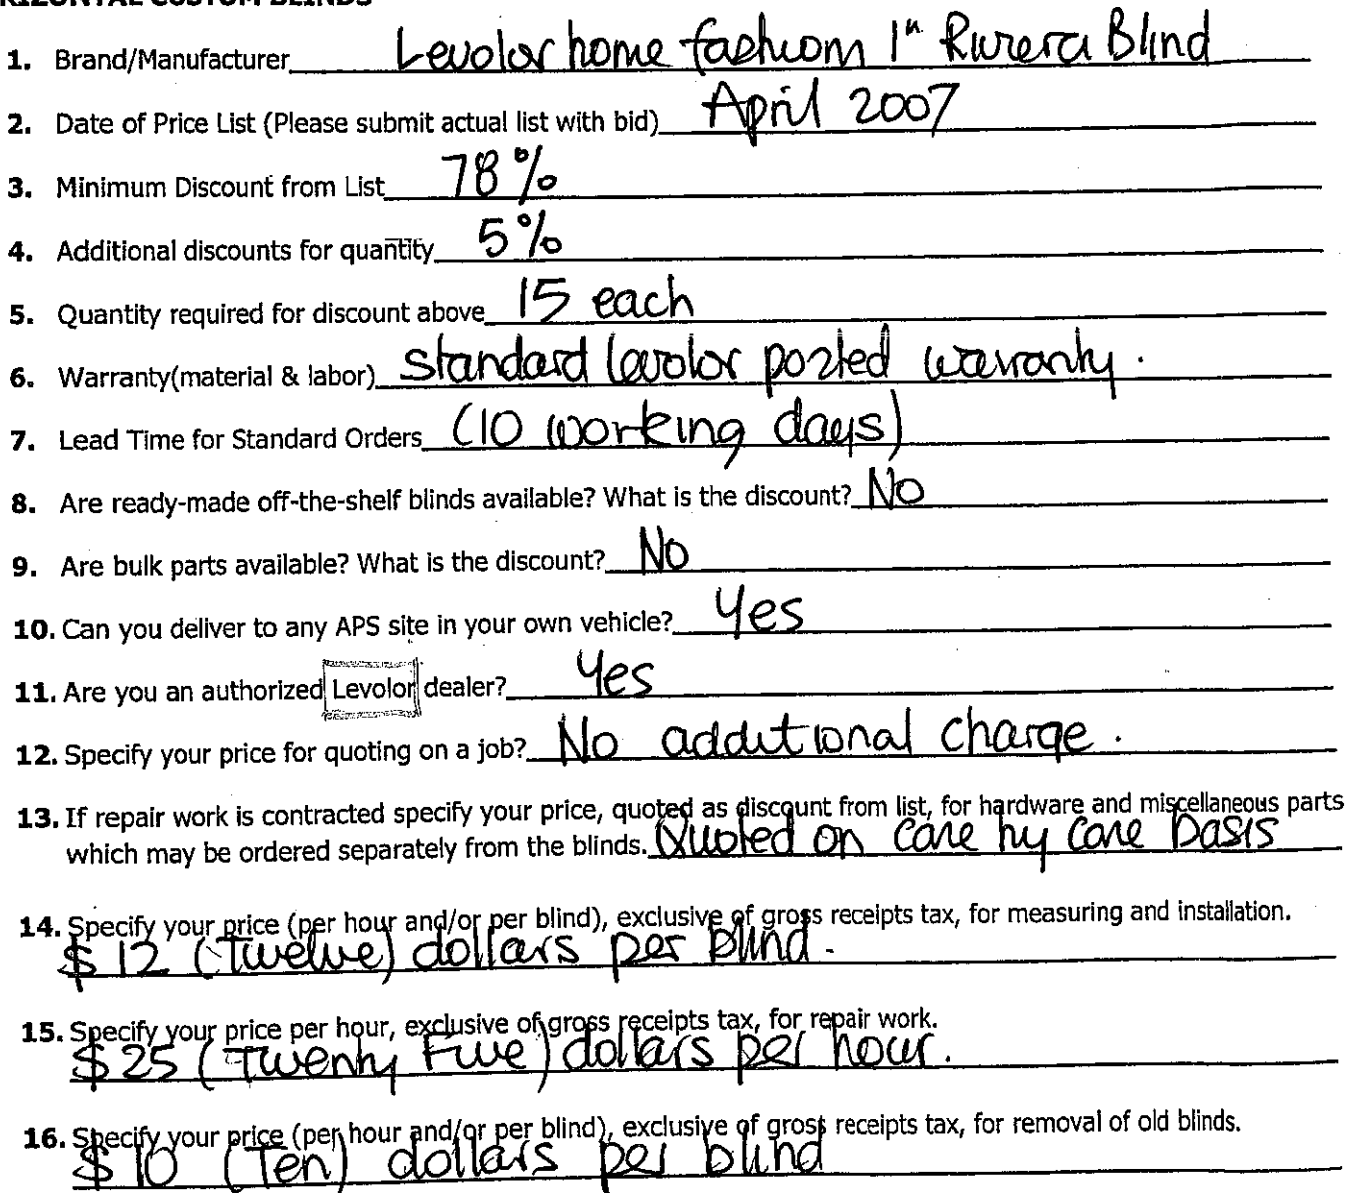 RIZONTAL CUSTOM BLINDS
1. Brand/Manufacturer Levolor home fashion 1" Riviera Blind
2. Date of Price List (Please submit actual list with bid) April 2007
3. Minimum Discount from List 78%
4. Additional discounts for quantity 5%
5. Quantity required for discount above 15 each
6. Warranty(material & labor) standard levolor posted warranty.
7. Lead Time for Standard Orders (10 working days)
8. Are ready-made off-the-shelf blinds available? What is the discount? No
9. Are bulk parts available? What is the discount? No
10. Can you deliver to any APS site in your own vehicle? Yes
11. Are you an authorized Levolor dealer? Yes
12. Specify your price for quoting on a job? No additional charge.
13. If repair work is contracted specify your price, quoted as discount from list, for hardware and miscellaneous parts
which may be ordered separately from the blinds. Quoted on case by case basis
14. Specify your price (per hour and/or per blind), exclusive of gross receipts tax, for measuring and installation.
$ 12 (Twelve) dollars per blind.
15. Specify your price per hour, exclusive of gross receipts tax, for repair work.
$ 25 (Twenty Five) dollars per hour.
16. Specify your price (per hour and/or per blind), exclusive of gross receipts tax, for removal of old blinds.
$ 10 (Ten) dollars per blind